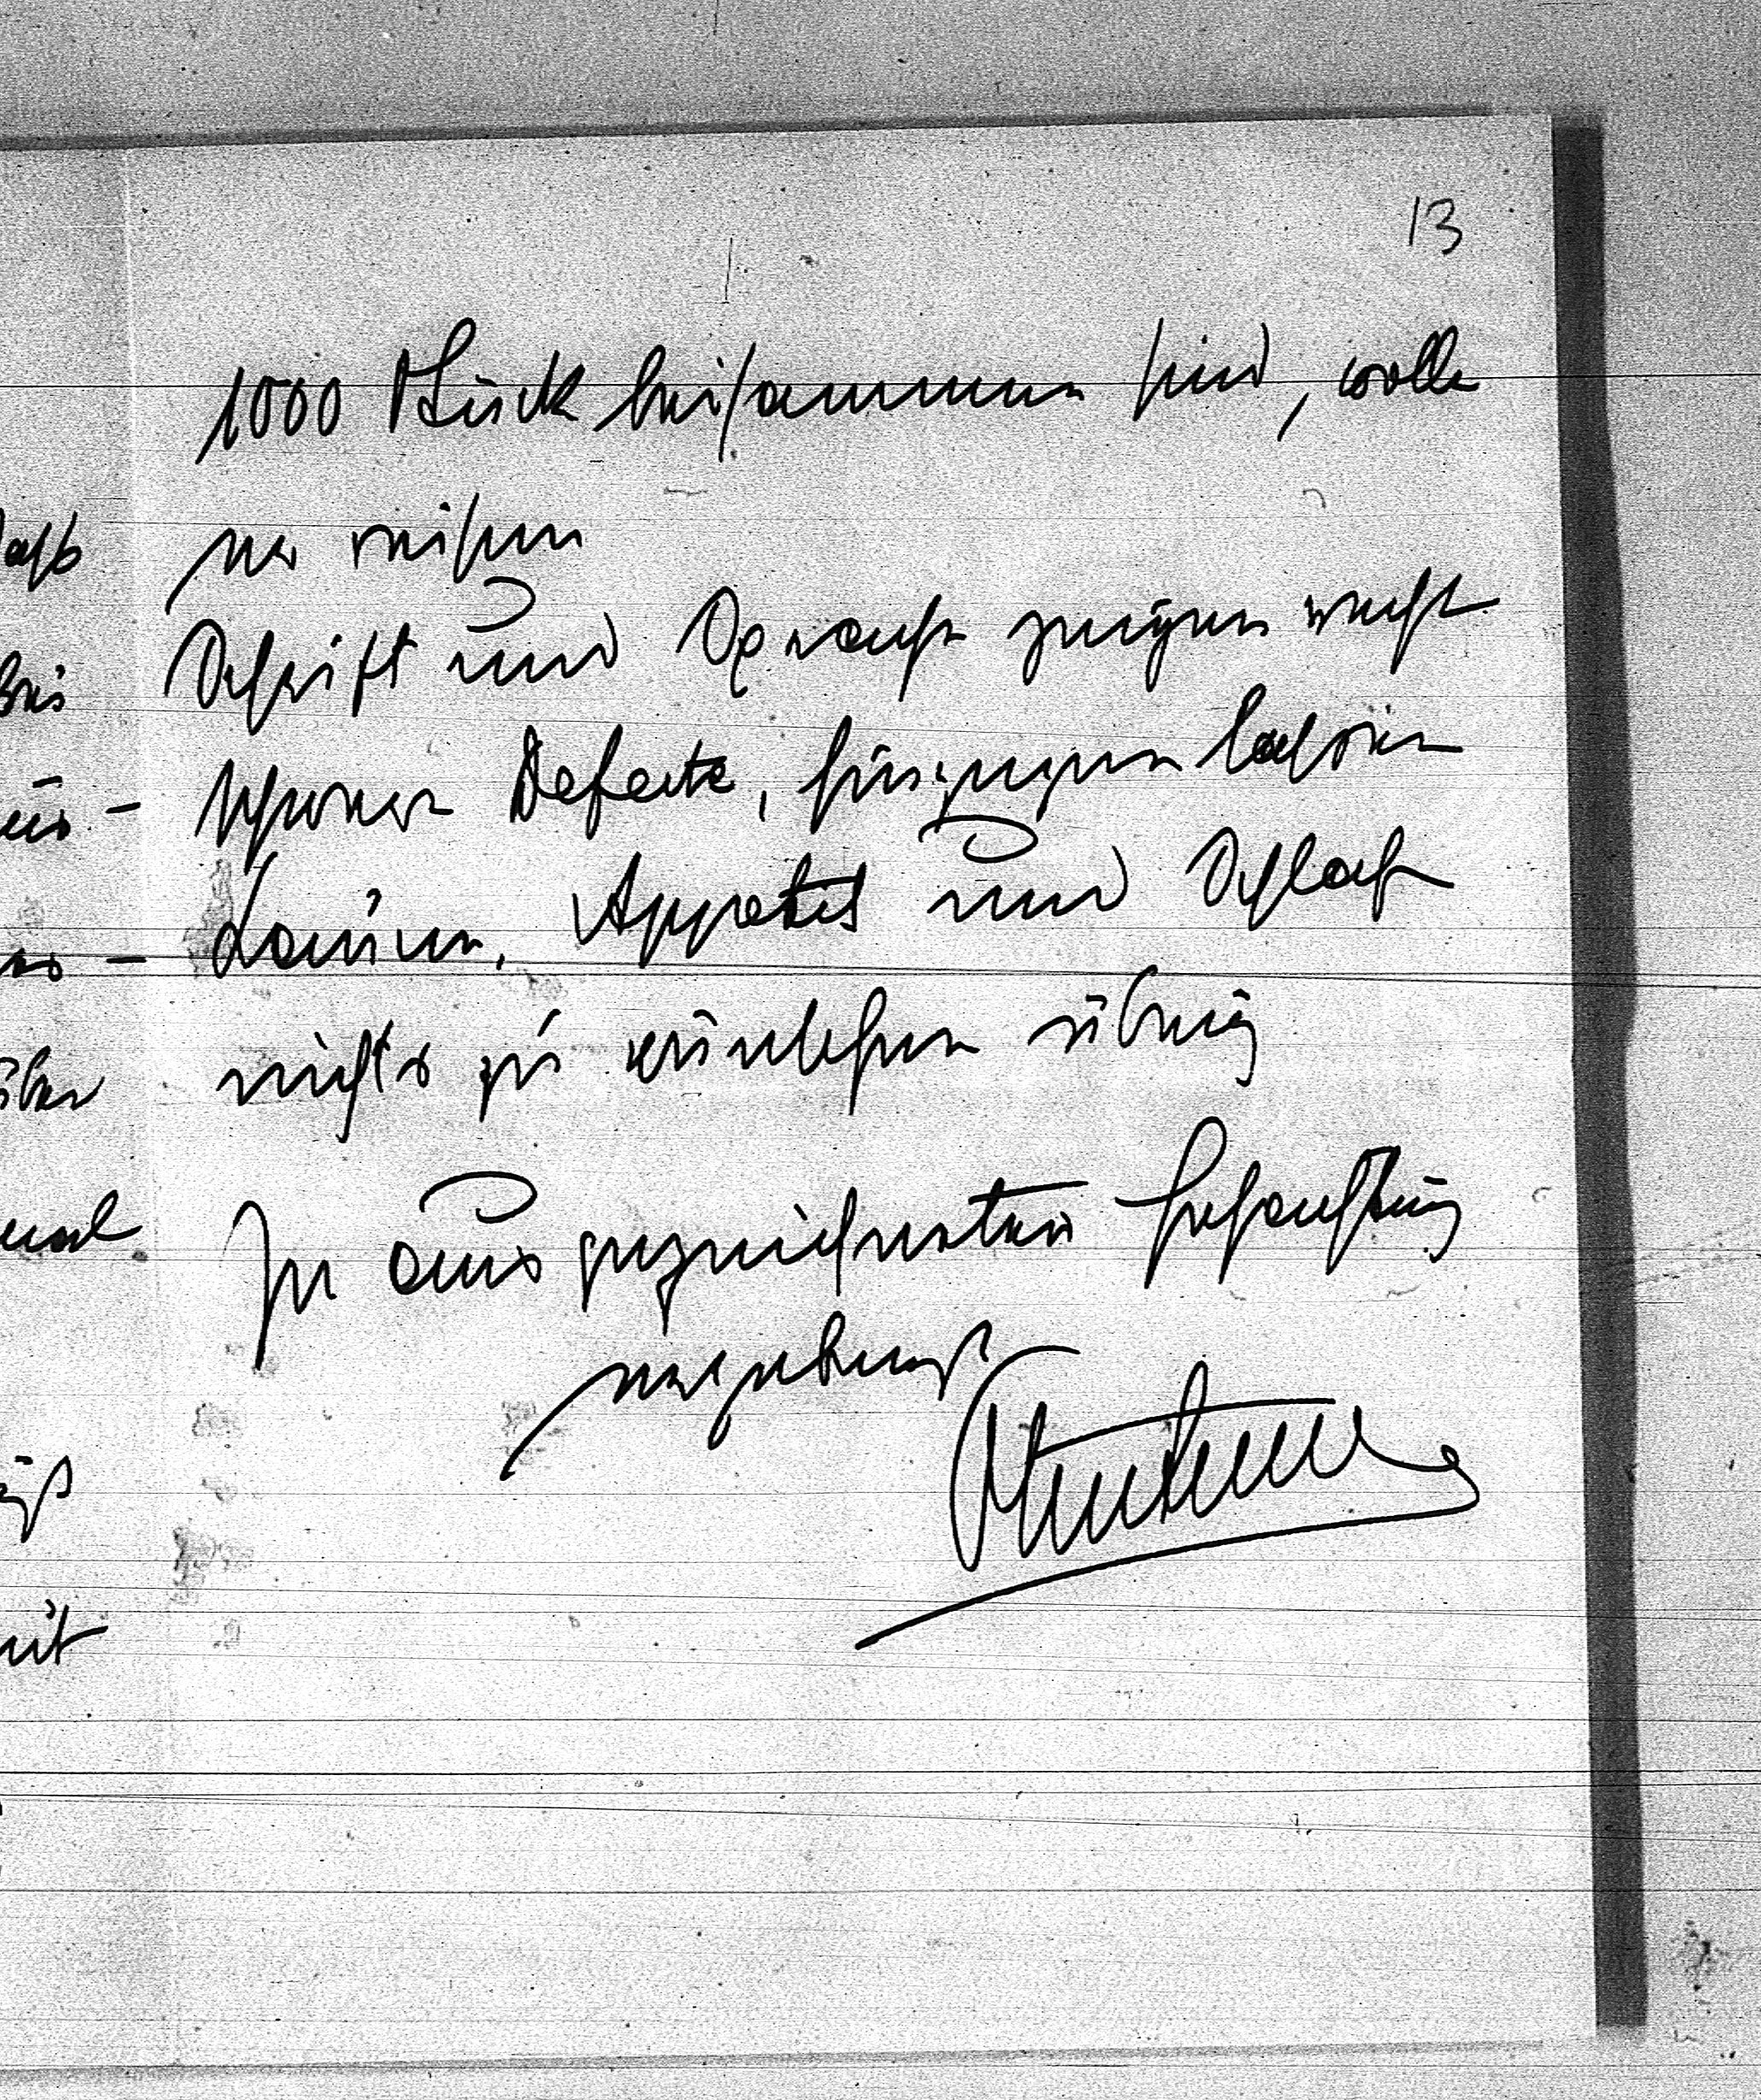 13
1000 Stück beisammen sind, wolle
er reisen
Schrift und Sprache zeigen noch
schwere Defecte, hingegen lassen
Laune, Appetit und Schlaf
nichts zu wünschen übrig
In ausgezeichneter Hochachtung
ergebenst